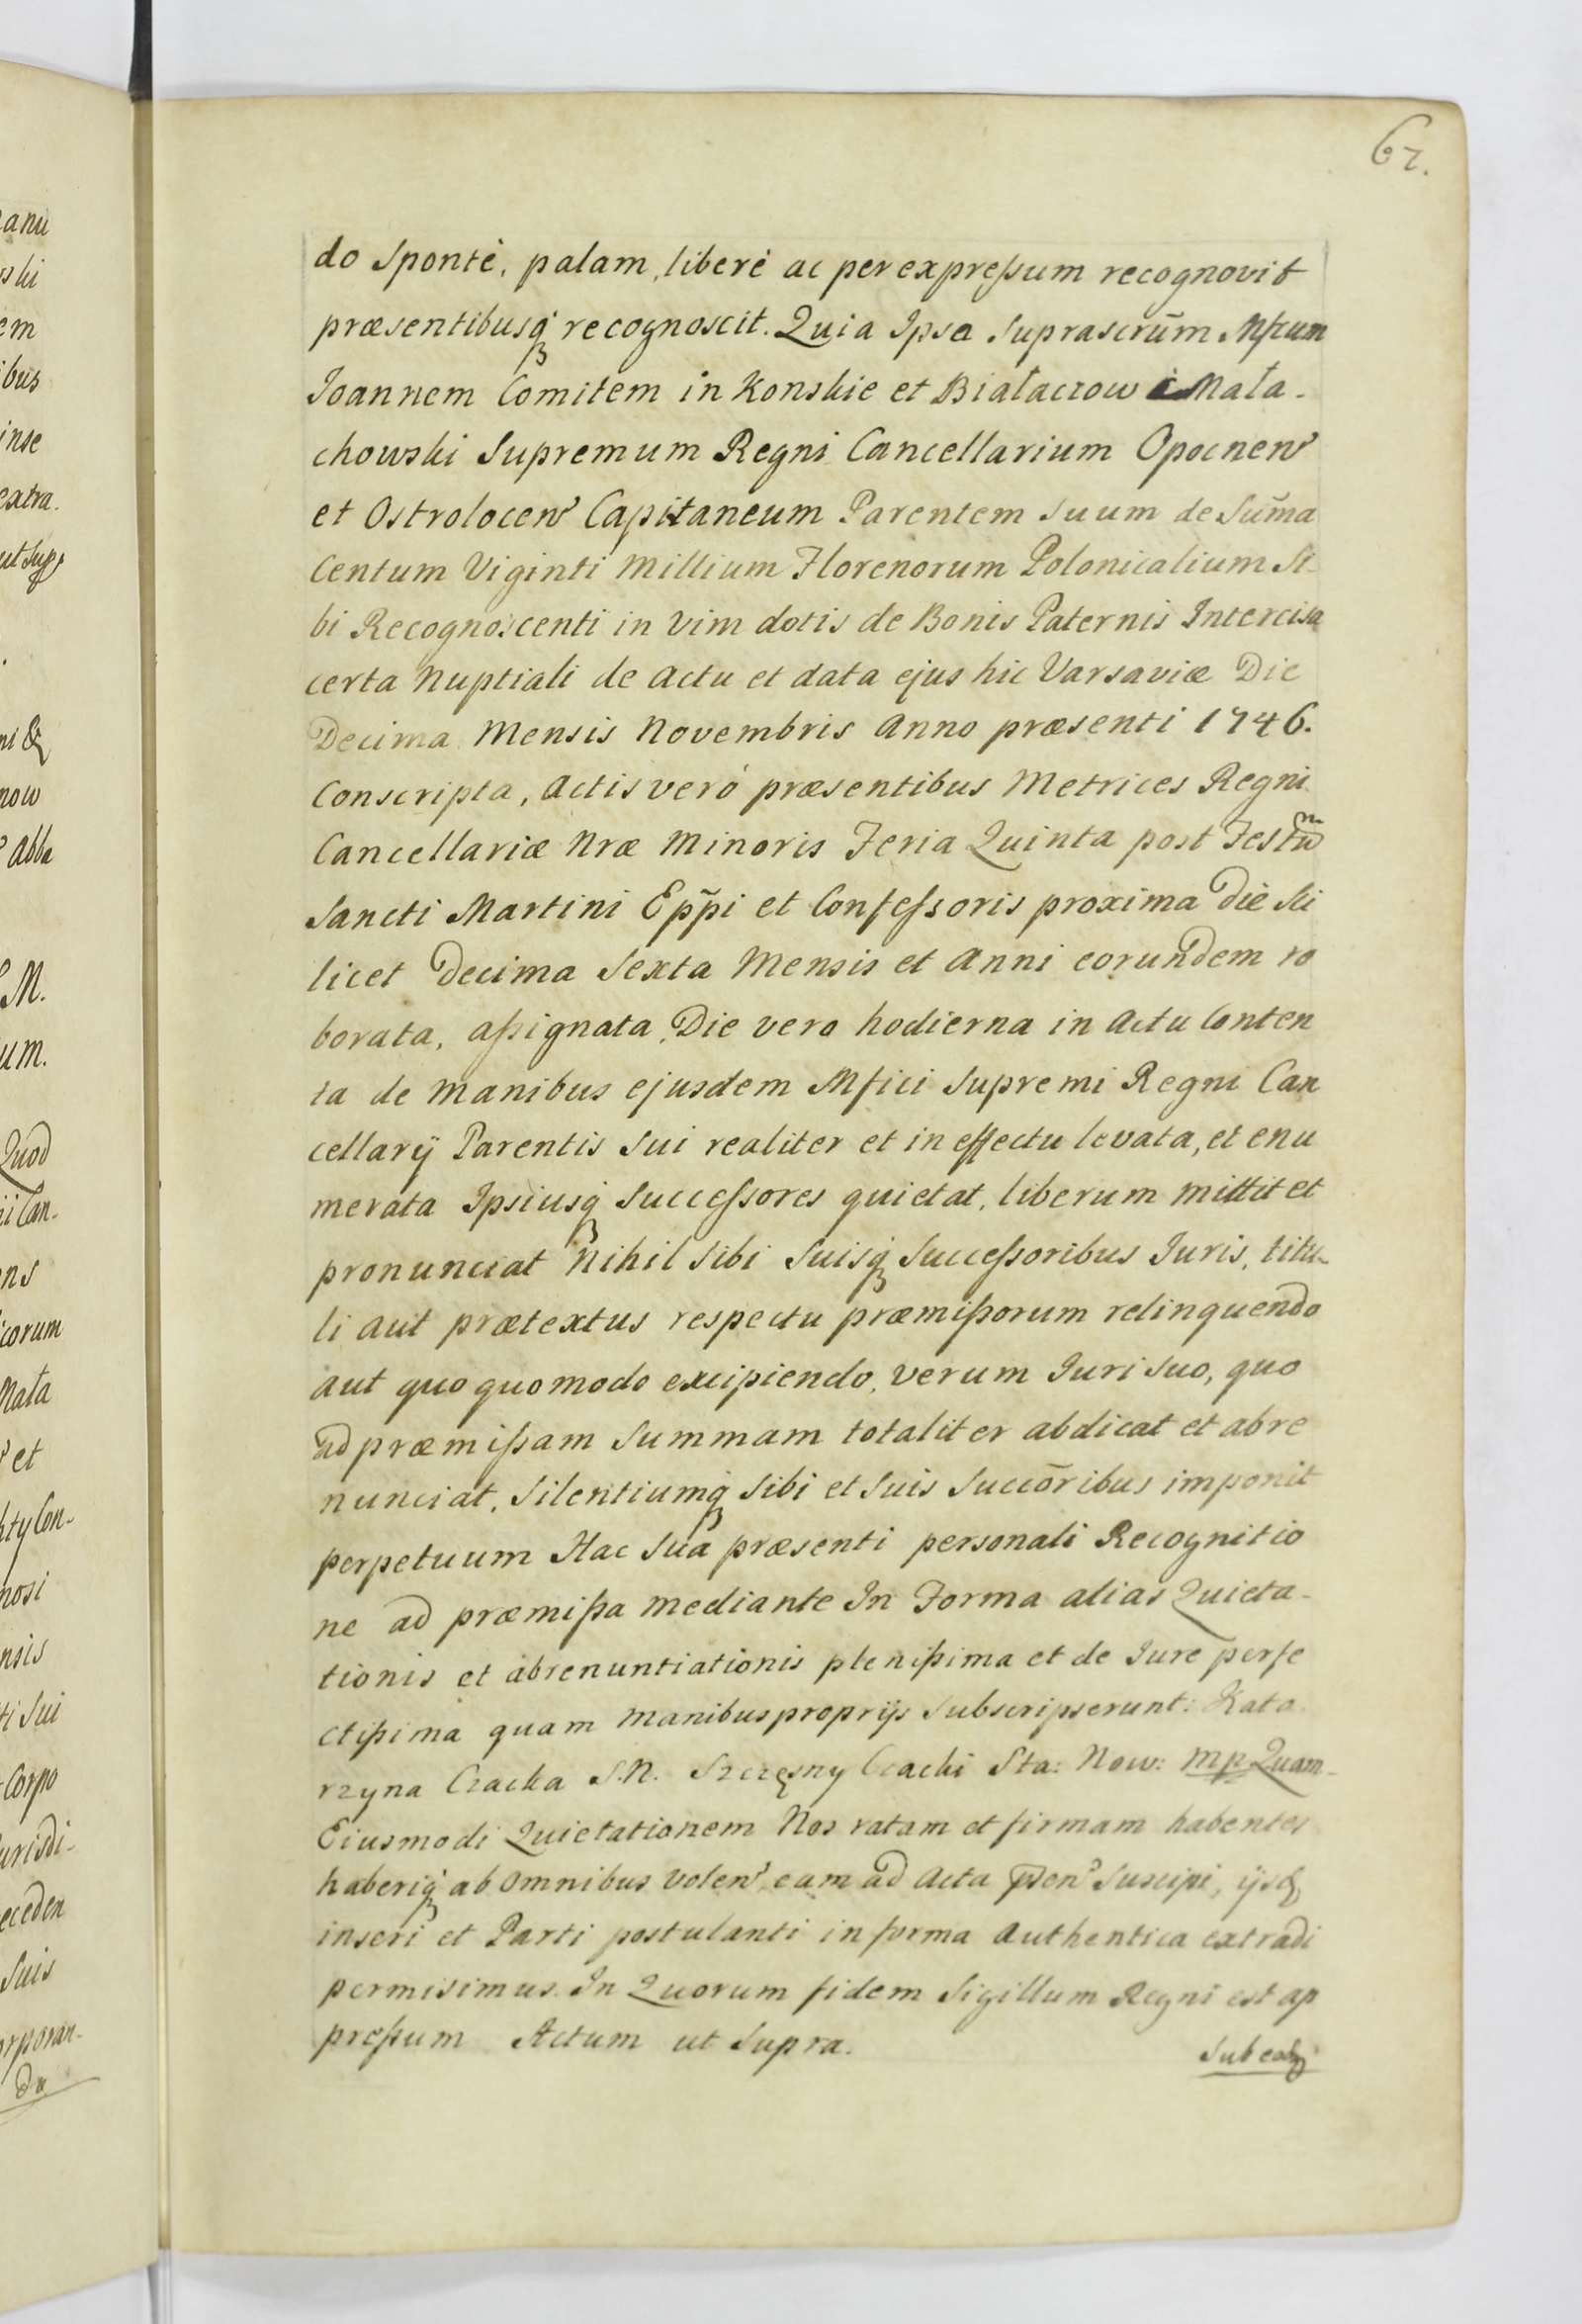 62.
do Sponte, palam, liberè ac per expreſsum recognovit
præsentibusq recognoscit. Quia Ipsa Suprascrūm Mfcum
Joannem Comitem in Konskie et Białaczow Mała-
chowski Supremum Regni Cancellarium Opocnen
et Ostrolocen Capitaneum Parentem Suum de Sum̄a
Centum Viginti Millium Florenorum Polonicalium Si-
bi Recognoscenti in Vim dotis de Bonis Paternis Intercisa
certa Nuptiali de Actu et data ejus hic Varsaviæ Die
Decima Mensis Novembris Anno præsenti 1746.
Conscripta, Actis verò præsentibus Metrices Regni
Cancellariæ Nræ Minoris Feria Quinta post Festum
Sancti Martini Epp̄i et Confeſsoris proxima Die Sci
licet Decima Sexta Mensis et Anni eorundem ro
borata, aſsignata, Die vero hodierna in Actu Conten
ta de Manibus ejusdem Mfici Supremi Regni Can
cellarÿ Parentis Sui realiter et in effectu levata, et enu
merata Ipsiusq Succeſsores quietat, liberum mittit et
pronunciat Nihil Sibi Suisq Succeſsoribus Juris, titu-
li aut prætextus respectu præmiſsorum relinquendo
aut quoquomodo excipiendo, Verum Juri Suo, quo
ad præmiſsam Summam totaliter abdicat et abre
nunciat, Silentiumq Sibi et Suis Succōribus imponit
perpetuum Hac Sua præsenti personali Recognitio
ne ad præmiſsa mediante In Forma alias Quieta-
tionis et abrenuntiationis pleniſsima et de Jure perfe
ctiſsima quam Manibus proprijs Subscripserunt: Kata
rzyna Czacka S.N. Szczęsny Czacki Sta: Now: mp Quam-
Eiusmodi Quietationem Nos ratam et firmam habentes
haberiq ab omnibus Volen, eam ad Acta p̄sen Suscipi, ijsdq
inseri et Parti postulanti in forma Authentica extradi
permisimus. In Quorum fidem Sigillum Regni est ap
preſsum Actum ut Supra.